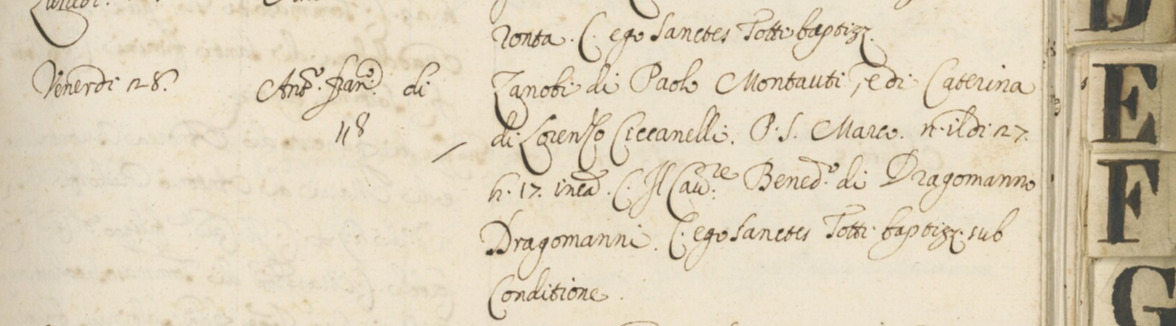 ronta. C. ego Sanctes Totti baptizz.
Venerdi 28. Anto. Franco. di Zanobi di Paolo Montauti, e di Caterina
118 di Lorenzo Ciccanelli. P. S. Marco. n. il di 27.
h. 17. in ca. C. Il Cavre. Bened.o di Dragomanno
Dragomanni. C. ego Sanctes Totti baptizz. sub
Conditione.
D
E
F
G